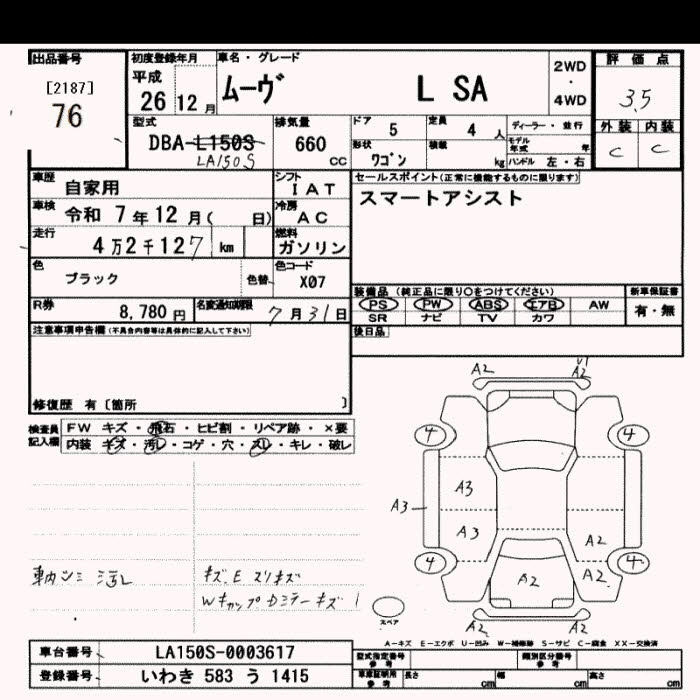 出品番号
[2187]
76
初度登録年月
平成
26 12 月
車名・グレード
ムーヴ L SA
2WD
・
4WD
評価点
3.5
外装 内装
C C
型式
DBA-L150S
LA150S
排気量
660
CC
ドア 5
定員 4 人
ディーラー・並行
形状 ワゴン
積載 kg
モデル年式 年
ハンドル 左・右
車歴 自家用
シフト
I A T
車検 令和 7 年 12 月( 日)
冷房
A C
走行 4 万 2 千 127 km
燃料
ガソリン
色 ブラック
色替
色コード
X07
R券 8,780 円
名変通知期限 7 月 31 日
セールスポイント(正常に機能するものに限ります)
スマートアシスト
装備品 (純正品に限り〇をつけてください)
PS PW ABS エアB AW
SR ナビ TV カワ
新車保証書
有・無
後日品
注意事項申告欄(不具合内容等は具体的に記入して下さい)
修復歴 有〔箇所 〕
検査員記入欄
FW キズ・飛石・ヒビ割・リペア跡・×要
内装 キズ・汚レ・コゲ・穴・スレ・キレ・破レ
車内シミ 汚レ
キズ.E スリキズ
A2 U1
A2
4 4
A3
A3
A3
A2
4 4
A2
A2
A2 A2
スペア
A-キズ E-エクボ U-凹み W-補修跡 S-サビ C-腐食 XX-交換済
車台番号 LA150S-0003617
登録番号 いわき 583 う 1415
型式指定番号
参考
類別区分番号
参考
車庫証明用
参考
長さ cm 幅 cm 高さ cm